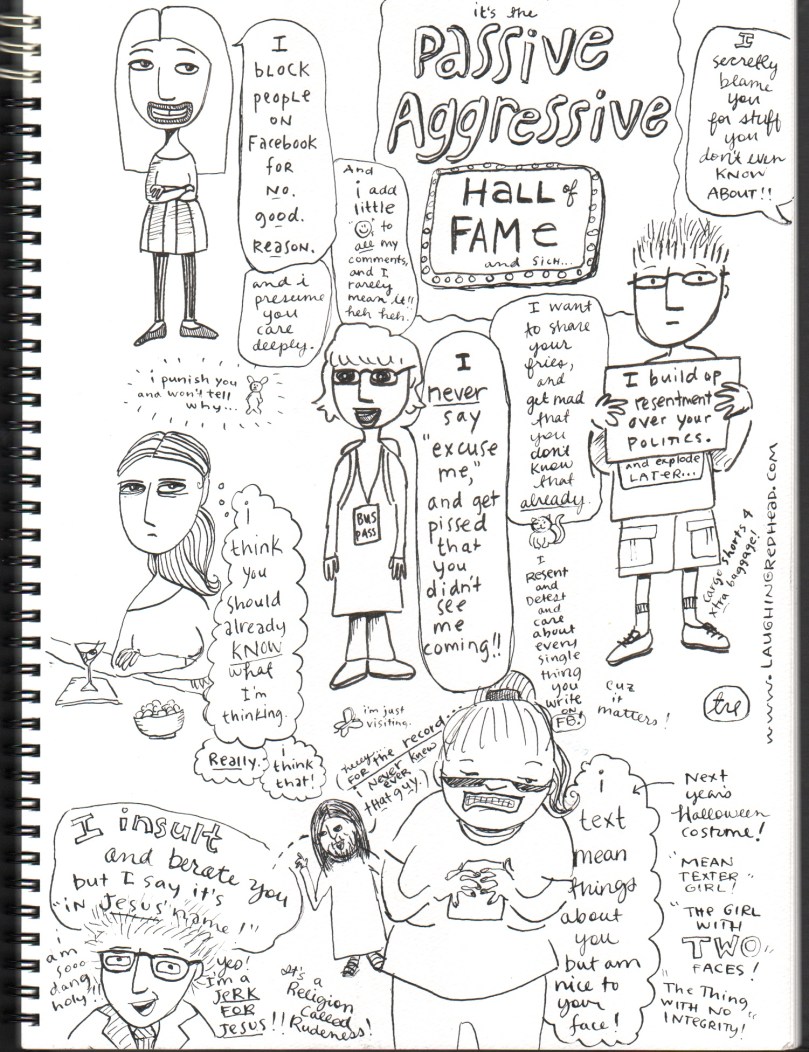 it's the
Passive
Aggressive
HALL of
FAMe
and sich...
I
block
people
on
Facebook
for
No.
good.
Reason.
and i
presume
you
care
deeply.
And
i add
little
☺ to
all my
comments,
and I
rarely
mean it!!
heh heh.
I
secretly
blame
you
for stuff
you
don't even
KNOW
ABOUT!!
i punish you
and won't tell
why...
I
never
say
"excuse
me,"
and get
pissed
that
you
didn't
see
me
coming!!
BUS
PASS
I want
to share
your
fries,
and
get mad
that
you
don't
know
that
already.
I build up
resentment
over your
POLITICS.
and explode
LATER...
cargo shorts &
Xtra baggage!
www.LAUGHINGREDHEAD.COM
I
Resent
and
Detest
and
care
about
every
single
thing
you
write
ON
FB!
cuz
it
matters!
tre
i
think
you
should
already
KNOW
what
I'm
thinking.
Really.
i
think
that!
i'm just
visiting.
heyy...
FOR the record...
(i never knew
ever
that guy.)
I insult
and berate you
but I say it's
"in Jesus' name!"
i
am
sooo
dang
holy!!
yes!
I'm a
JERK
FOR
JESUS!!
It's a
Religion
called
Rudeness!
i
text
mean
things
about
you
but am
nice to
your
face!
Next
year's
Halloween
costume!
"MEAN
TEXTER
GIRL!"
"THE GIRL
WITH
TWO
FACES!"
"The Thing
WITH NO
INTEGRITY!"